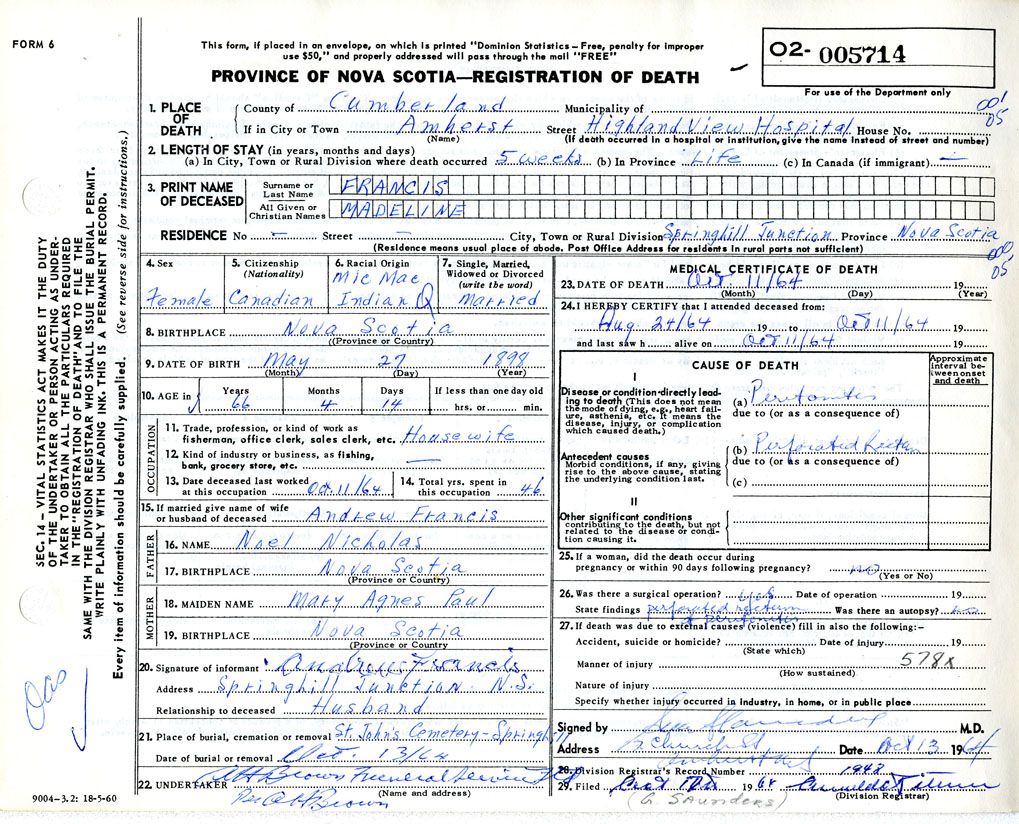 FORM 6
This form, if placed in an envelope, on which is printed "Dominion Statistics – Free, penalty for improper
use $50," and properly addressed will pass through the mail "FREE"
PROVINCE OF NOVA SCOTIA—REGISTRATION OF DEATH
02- 005714
For use of the Department only
001
05
SEC. 14 – VITAL STATISTICS ACT MAKES IT THE DUTY
OF THE UNDERTAKER OR PERSON ACTING AS UNDER-
TAKER TO OBTAIN ALL THE PARTICULARS REQUIRED
IN THE "REGISTRATION OF DEATH" AND TO FILE THE
SAME WITH THE DIVISION REGISTRAR WHO SHALL ISSUE THE BURIAL PERMIT.
WRITE PLAINLY WITH UNFADING INK. THIS IS A PERMANENT RECORD.
Every item of information should be carefully supplied. (See reverse side for instructions.)
1. PLACE OF DEATH
County of Cumberland Municipality of
If in City or Town Amherst Street Highland View Hospital House No.
(Name) (If death occurred in a hospital or institution, give the name instead of street and number)
2. LENGTH OF STAY (in years, months and days)
(a) In City, Town or Rural Division where death occurred 5 weeks (b) In Province Life (c) In Canada (if immigrant) —
3. PRINT NAME OF DECEASED
Surname or Last Name FRANCIS
All Given or Christian Names MADELINE
RESIDENCE No — Street — City, Town or Rural Division Springhill Junction Province Nova Scotia
(Residence means usual place of abode. Post Office Address for residents in rural parts not sufficient)
000
05
4. Sex
Female
5. Citizenship
(Nationality)
Canadian
6. Racial Origin
Mic Mac
Indian
7. Single, Married,
Widowed or Divorced
(write the word)
Married
8. BIRTHPLACE Nova Scotia
(Province or Country)
9. DATE OF BIRTH May 27 1898
(Month) (Day) (Year)
10. AGE in
Years Months Days If less than one day old
66 4 14 hrs. or min.
OCCUPATION
11. Trade, profession, or kind of work as
fisherman, office clerk, sales clerk, etc. Housewife
12. Kind of industry or business, as fishing,
bank, grocery store, etc. —
13. Date deceased last worked
at this occupation Oct. 11/64
14. Total yrs. spent in
this occupation 46
15. If married give name of wife
or husband of deceased Andrew Francis
FATHER
16. NAME Noel Nicholas
17. BIRTHPLACE Nova Scotia
(Province or Country)
MOTHER
18. MAIDEN NAME Mary Agnes Paul
19. BIRTHPLACE Nova Scotia
(Province or Country
20. Signature of informant Andrew Francis
Address Springhill Junction N.S.
Relationship to deceased Husband
21. Place of burial, cremation or removal St. John's Cemetery-Springhill
Date of burial or removal Oct. 13/64
22. UNDERTAKER Brown Funeral Service
(Name and address)
Per Brown
9004-3.2: 18-5-60
MEDICAL CERTIFICATE OF DEATH
23. DATE OF DEATH Oct. 11/64 19
(Month) (Day) (Year)
24. I HEREBY CERTIFY that I attended deceased from:
Aug. 24/64 19 to Oct 11/64 19
and last saw h alive on Oct 11/64 19
CAUSE OF DEATH
Approximate
interval be-
tween onset
and death
I
Disease or condition directly lead-
ing to death (This does not mean
the mode of dying, e.g., heart fail-
ure, asthenia, etc. It means the
disease, injury, or complication
which caused death.)
(a) Peritonitis
due to (or as a consequence of)
Antecedent causes
Morbid conditions, if any, giving
rise to the above cause, stating
the underlying condition last.
(b) Perforated Rectum
due to (or as a consequence of)
(c)
II
Other significant conditions
contributing to the death, but not
related to the disease or condi-
tion causing it.
25. If a woman, did the death occur during
pregnancy or within 90 days following pregnancy? no
(Yes or No)
26. Was there a surgical operation? yes Date of operation 19
State findings perforated rectum Was there an autopsy? no
peritonitis
27. If death was due to external causes (violence) fill in also the following:–
Accident, suicide or homicide? Date of injury 19
(State which)
Manner of injury 578x
(How sustained)
Nature of injury
Specify whether injury occurred in industry, in home, or in public place
Signed by M.D.
Address Church St Date Oct 13 1964
28. Division Registrar's Record Number 1948
29. Filed 1964
(G. SAUNDERS) (Division Registrar)